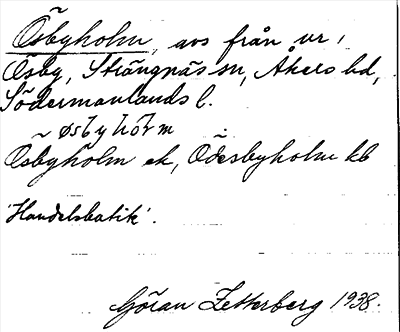 Ösbyholm, avs från ur,
Ösby, Strängnäs sn, Åkers hd,
Södermanlands l.
øsbyhòrm
Ösbyholm ek, Ödesbyholm kb
'Handelsbutik'.
Göran Zetterberg 1938.